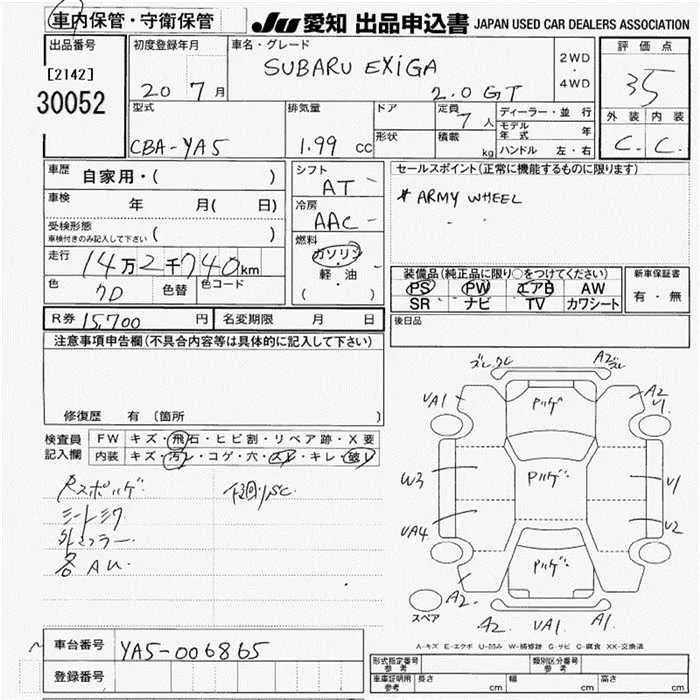 車内保管・守衛保管 JU 愛知 出品申込書 JAPAN USED CAR DEALERS ASSOCIATION
出品番号 [2142] 30052
初度登録年月 20 7月
車名・グレード SUBARU EXiGA 2.0 GT
2WD ・ 4WD
評価点 35
外装 内装
C. C.
型式 CBA-YA5
排気量 1.99 cc
ドア
形状
定員 7人
積載 kg
ディーラー・並行
モデル年式 年
ハンドル 左・右
車歴 自家用・( )
車検 年 月( 日)
受検形態
車検付きのみ記入して下さい ( )
走行 14万2千740km
色 色替 色コード
シフト AT
冷房 AAC
燃料 ガソリン・軽油
( )
セールスポイント(正常に機能するものに限ります)
* ARMY WHEEL
装備品(純正品に限り○をつけてください)
PS PW エアB AW
SR ナビ TV カワシート
新車保証書
有・無
R券 15,700 円 名変期限 月 日
後日品
注意事項申告欄(不具合内容等は具体的に記入して下さい)
修復歴 有(箇所 )
検査員記入欄
FW キズ・飛石・ヒビ割・リペア跡・X要
内装 キズ・汚レ・コゲ・穴・スレ・キレ・破レ
各AU.
A2
UA1 A2 U1
W3 U1
UA4 U2
A2 A2 UA1 A1
スペア
A-キズ E-エクボ U-凹み W-補修跡 S-サビ C-腐食 XX-交換済
車台番号 YA5-006865
登録番号
形式指定番号 参考 類別区分番号 参考
車庫証明用 参考 長さ cm 幅 cm 高さ cm